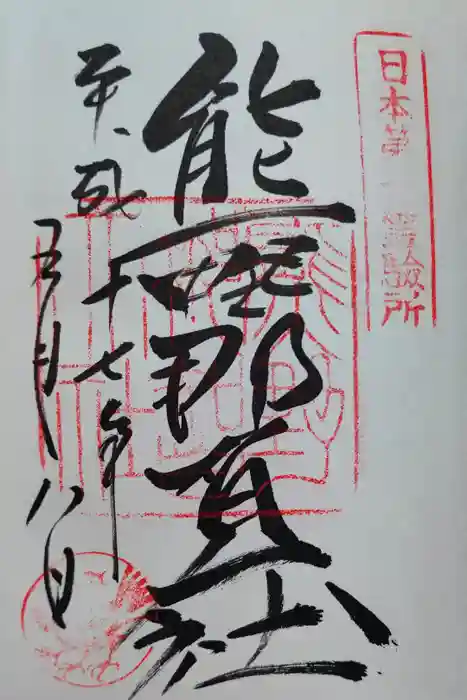 日本第一霊験所
熊野那智大社
平成十七年
五月八日